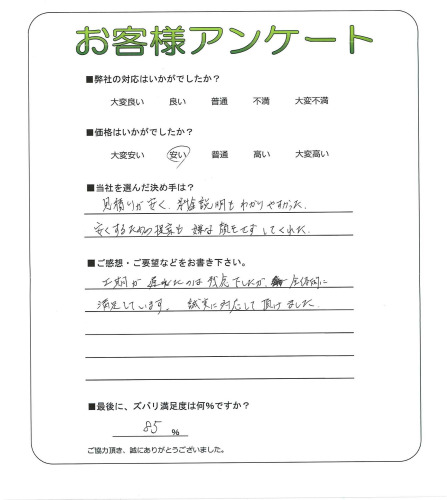 お客様アンケート
■弊社の対応はいかがでしたか?
大変良い 良い 普通 不満 大変不満
■価格はいかがでしたか?
大変安い 安い 普通 高い 大変高い
■当社を選んだ決め手は?
見積りが安く、説明もわかりやすかった。
安くするための提案も嫌な顔をせずしてくれた。
■ご感想・ご要望などをお書き下さい。
工期が遅れたのは残念でしたが、全体的に
満足しています。誠実に対応して頂けました。
■最後に、ズバリ満足度は何%ですか?
85 %
ご協力頂き、誠にありがとうございました。